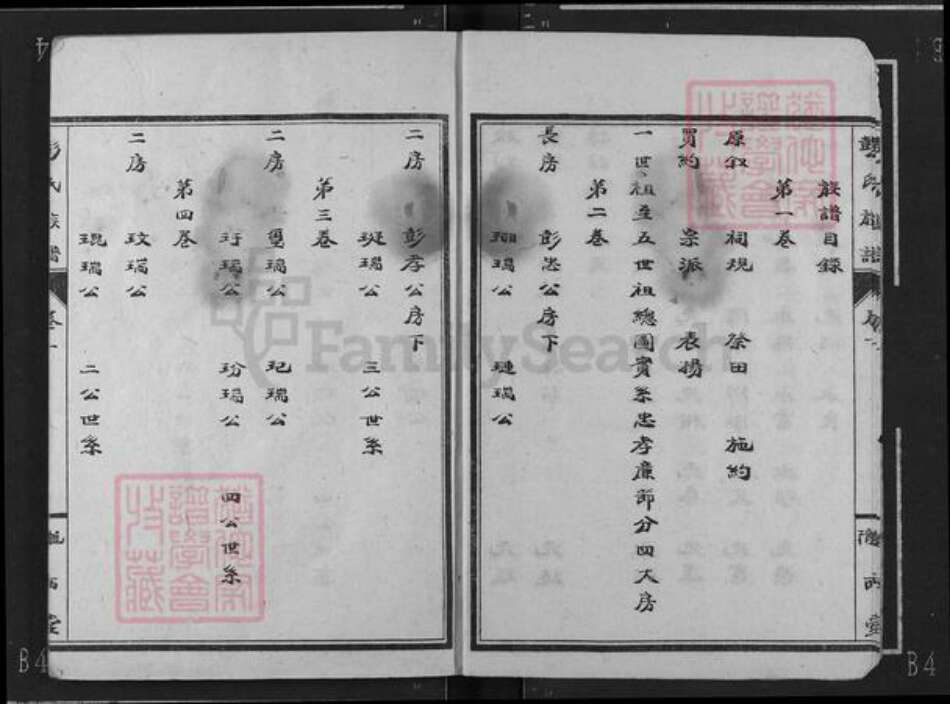 族譜目錄
第一卷
原叙 祠規 祭田 施約
買約 宗派 表揚
一世祖至五世祖總圖實系忠孝廉節分四大房
第二卷
長房 彭忠公房下
瑚瑞公 璉瑞公
二房 彭孝公房下
珽瑞公 三公世系
第三卷
二房 璽瑞公 玘瑞公
玗瑞公 玢瑞公 四公世系
第四卷
二房 玟瑞公
琨瑞公 二公世系
彭氏族譜
B4
B4
FamilySearch